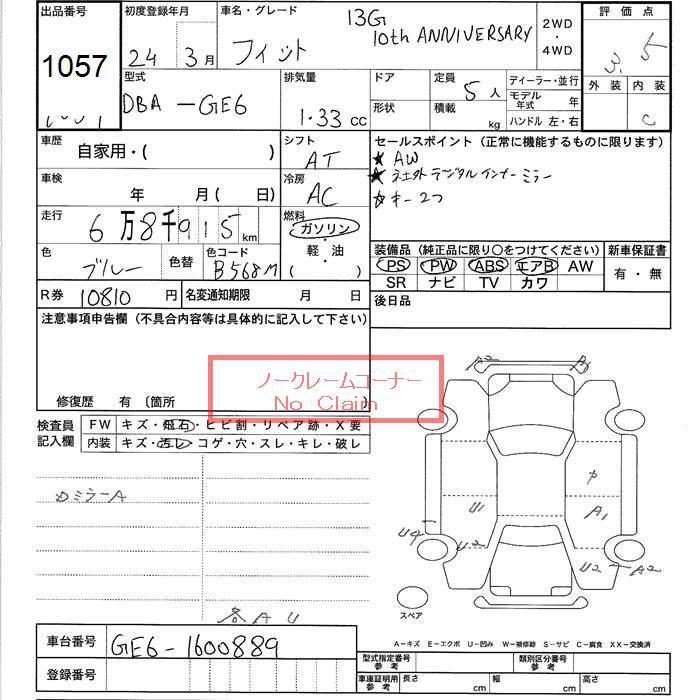 出品番号 初度登録年月 車名・グレード 13G 評価点
1057 24 3月 フィット 10th ANNIVERSARY 2WD・4WD 3.5
型式 排気量 ドア 定員 5人 ディーラー・並行 外装 内装
DBA-GE6 1.33cc 形状 積載 kg モデル年式 年 C
ハンドル 左・右
車歴 自家用・( ) シフト AT セールスポイント (正常に機能するものに限ります)
★AW
車検 年 月( 日) 冷房 AC ★社外デジタルインナーミラー
☆キー2つ
走行 6万8千915km 燃料 ガソリン・軽油
( )
色 ブルー 色替 色コード B568M 装備品 (純正品に限り○をつけてください) 新車保証書
PS PW ABS エアB AW 有・無
SR ナビ TV カワ
R券 10810円 名変通知期限 月 日 後日品
注意事項申告欄 (不具合内容等は具体的に記入して下さい)
ノークレームコーナー
No Claim
修復歴 有 〔箇所
検査員記入欄 FW キズ・飛石・ヒビ割・リペア跡・X要
内装 キズ・汚レ・コゲ・穴・スレ・キレ・破レ
A2 A1
ミラーA
U1 A1
U4 U2 U2 A2
スペア
各AU
A－キズ E－エクボ U－凹み W－補修跡 S－サビ C－腐食 XX－交換済
車台番号 GE6-1600889
型式指定番号 参考 類別区分番号 参考
登録番号 車庫証明用 参考 長さ cm 幅 cm 高さ cm